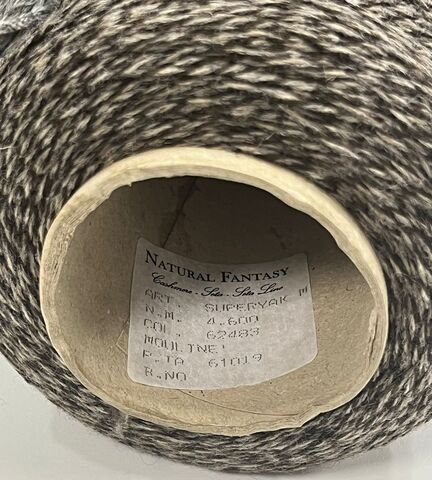 NATURAL FANTASY
Cashmere - Seta - Seta Lino
ART. SUPERYAK M
N.M. 4.600
COL. 62483
MOULINE'
P.TA 61019
R.NO